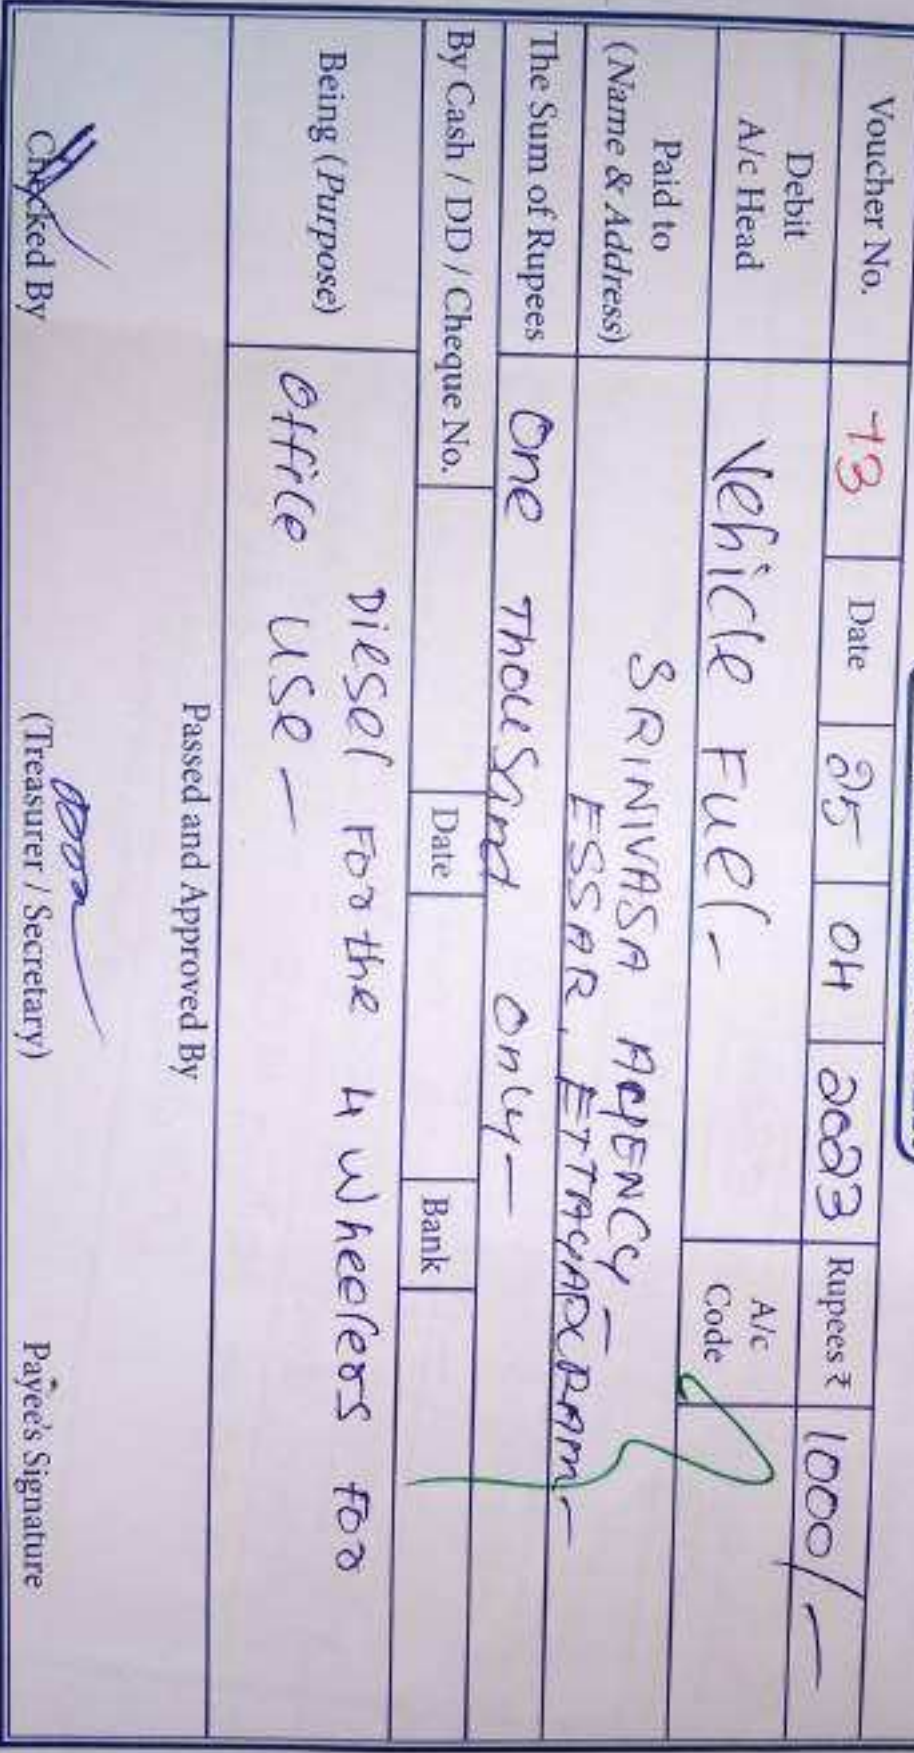 Voucher No. 13 Date 25 04 2023 Rupees ₹ 1000/-
Debit A/c Head Vehicle Fuel - A/c Code
Paid to (Name & Address) SRINIVASA AGENCY -
ESSAR, ETTAYAPURAM -
The Sum of Rupees One Thousand only -
By Cash / DD / Cheque No. Date Bank
Being (Purpose) Diesel For the 4 wheelers for
office use -
Passed and Approved By
Checked By (Treasurer / Secretary) Payee's Signature